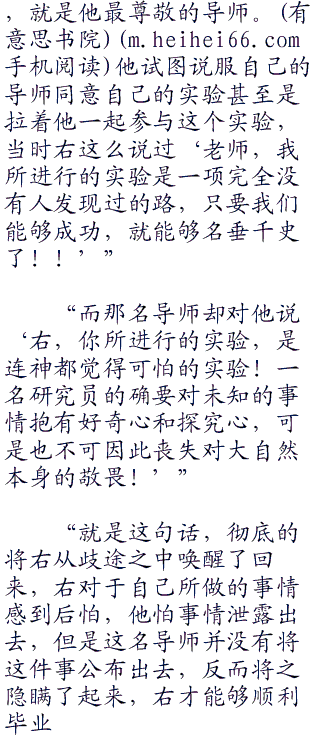 ，就是他最尊敬的导师。(有
意思书院)(m.heihei66.com
手机阅读)他试图说服自己的
导师同意自己的实验甚至是
拉着他一起参与这个实验，
当时右这么说过‘老师，我
所进行的实验是一项完全没
有人发现过的路，只要我们
能够成功，就能够名垂千史
了！！’”
“而那名导师却对他说
‘右，你所进行的实验，是
连神都觉得可怕的实验！一
名研究员的确要对未知的事
情抱有好奇心和探究心，可
是也不可因此丧失对大自然
本身的敬畏！’”
“就是这句话，彻底的
将右从歧途之中唤醒了回
来，右对于自己所做的事情
感到后怕，他怕事情泄露出
去，但是这名导师并没有将
这件事公布出去，反而将之
隐瞒了起来，右才能够顺利
毕业